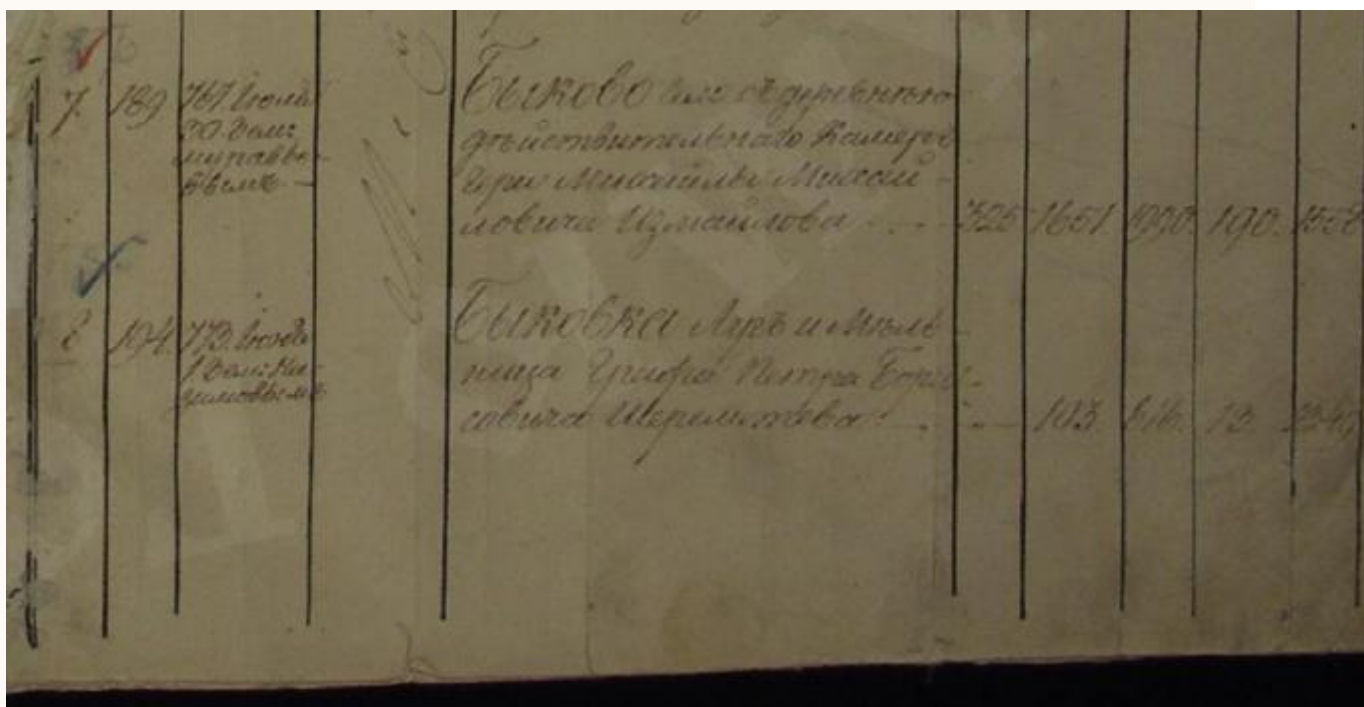 7. 189 767. Июля
30. Зем:
муравье-
вымъ. —
Быково село съ деревнею
действительнаго Камеръ
гера Михайлы Михай-
ловича Измайлова — 325 1651. 1990. 190. 1558
8 194. 773. Июля
1 Зем:
Быковка Лугъ и Мель-
ница Графа Петра Бори-
совича Шереметева: — 103. 616. 12.